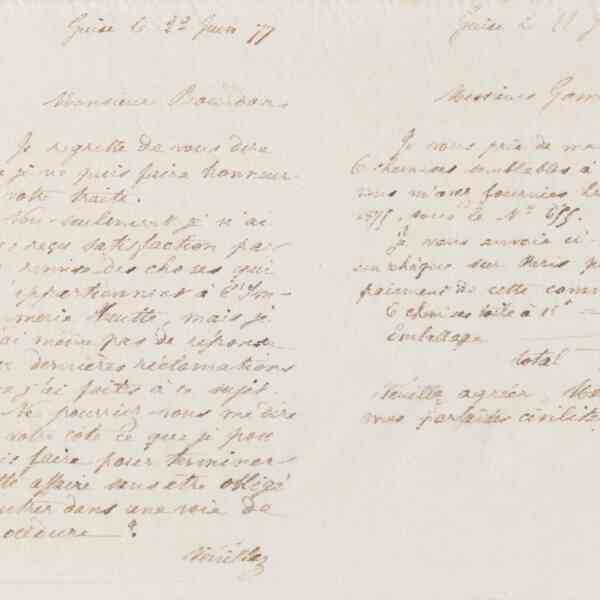 Guise le 22 Juin 77
Monsieur Bourdon
Je regrette de vous dire
je ne puis faire honneur
votre traite.
Non-seulement je n'ai
reçu satisfaction par
remise des choses qui
appartiennent à
mais je
ai même pas de réponse
dernières réclamations
j'ai faites à ce sujet.
Ne pourriez-vous me dire
votre côté ce que je
faire pour terminer
affaire sans être obligé
entrer dans une voie de
?
Veuillez
Guise le
Messieurs
Je vous prie de
6 chemises semblables à
m'avez fournies
1875, sous le N° 655.
Je vous envoie ci-
un chèque sur Paris
paiement de cette
6 chemises toile à
Emballage
total
Veuillez agréer,
mes parfaites